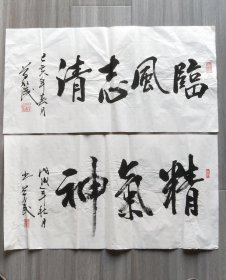 臨風志清
己亥年春月
精氣神
戊戌年秋月